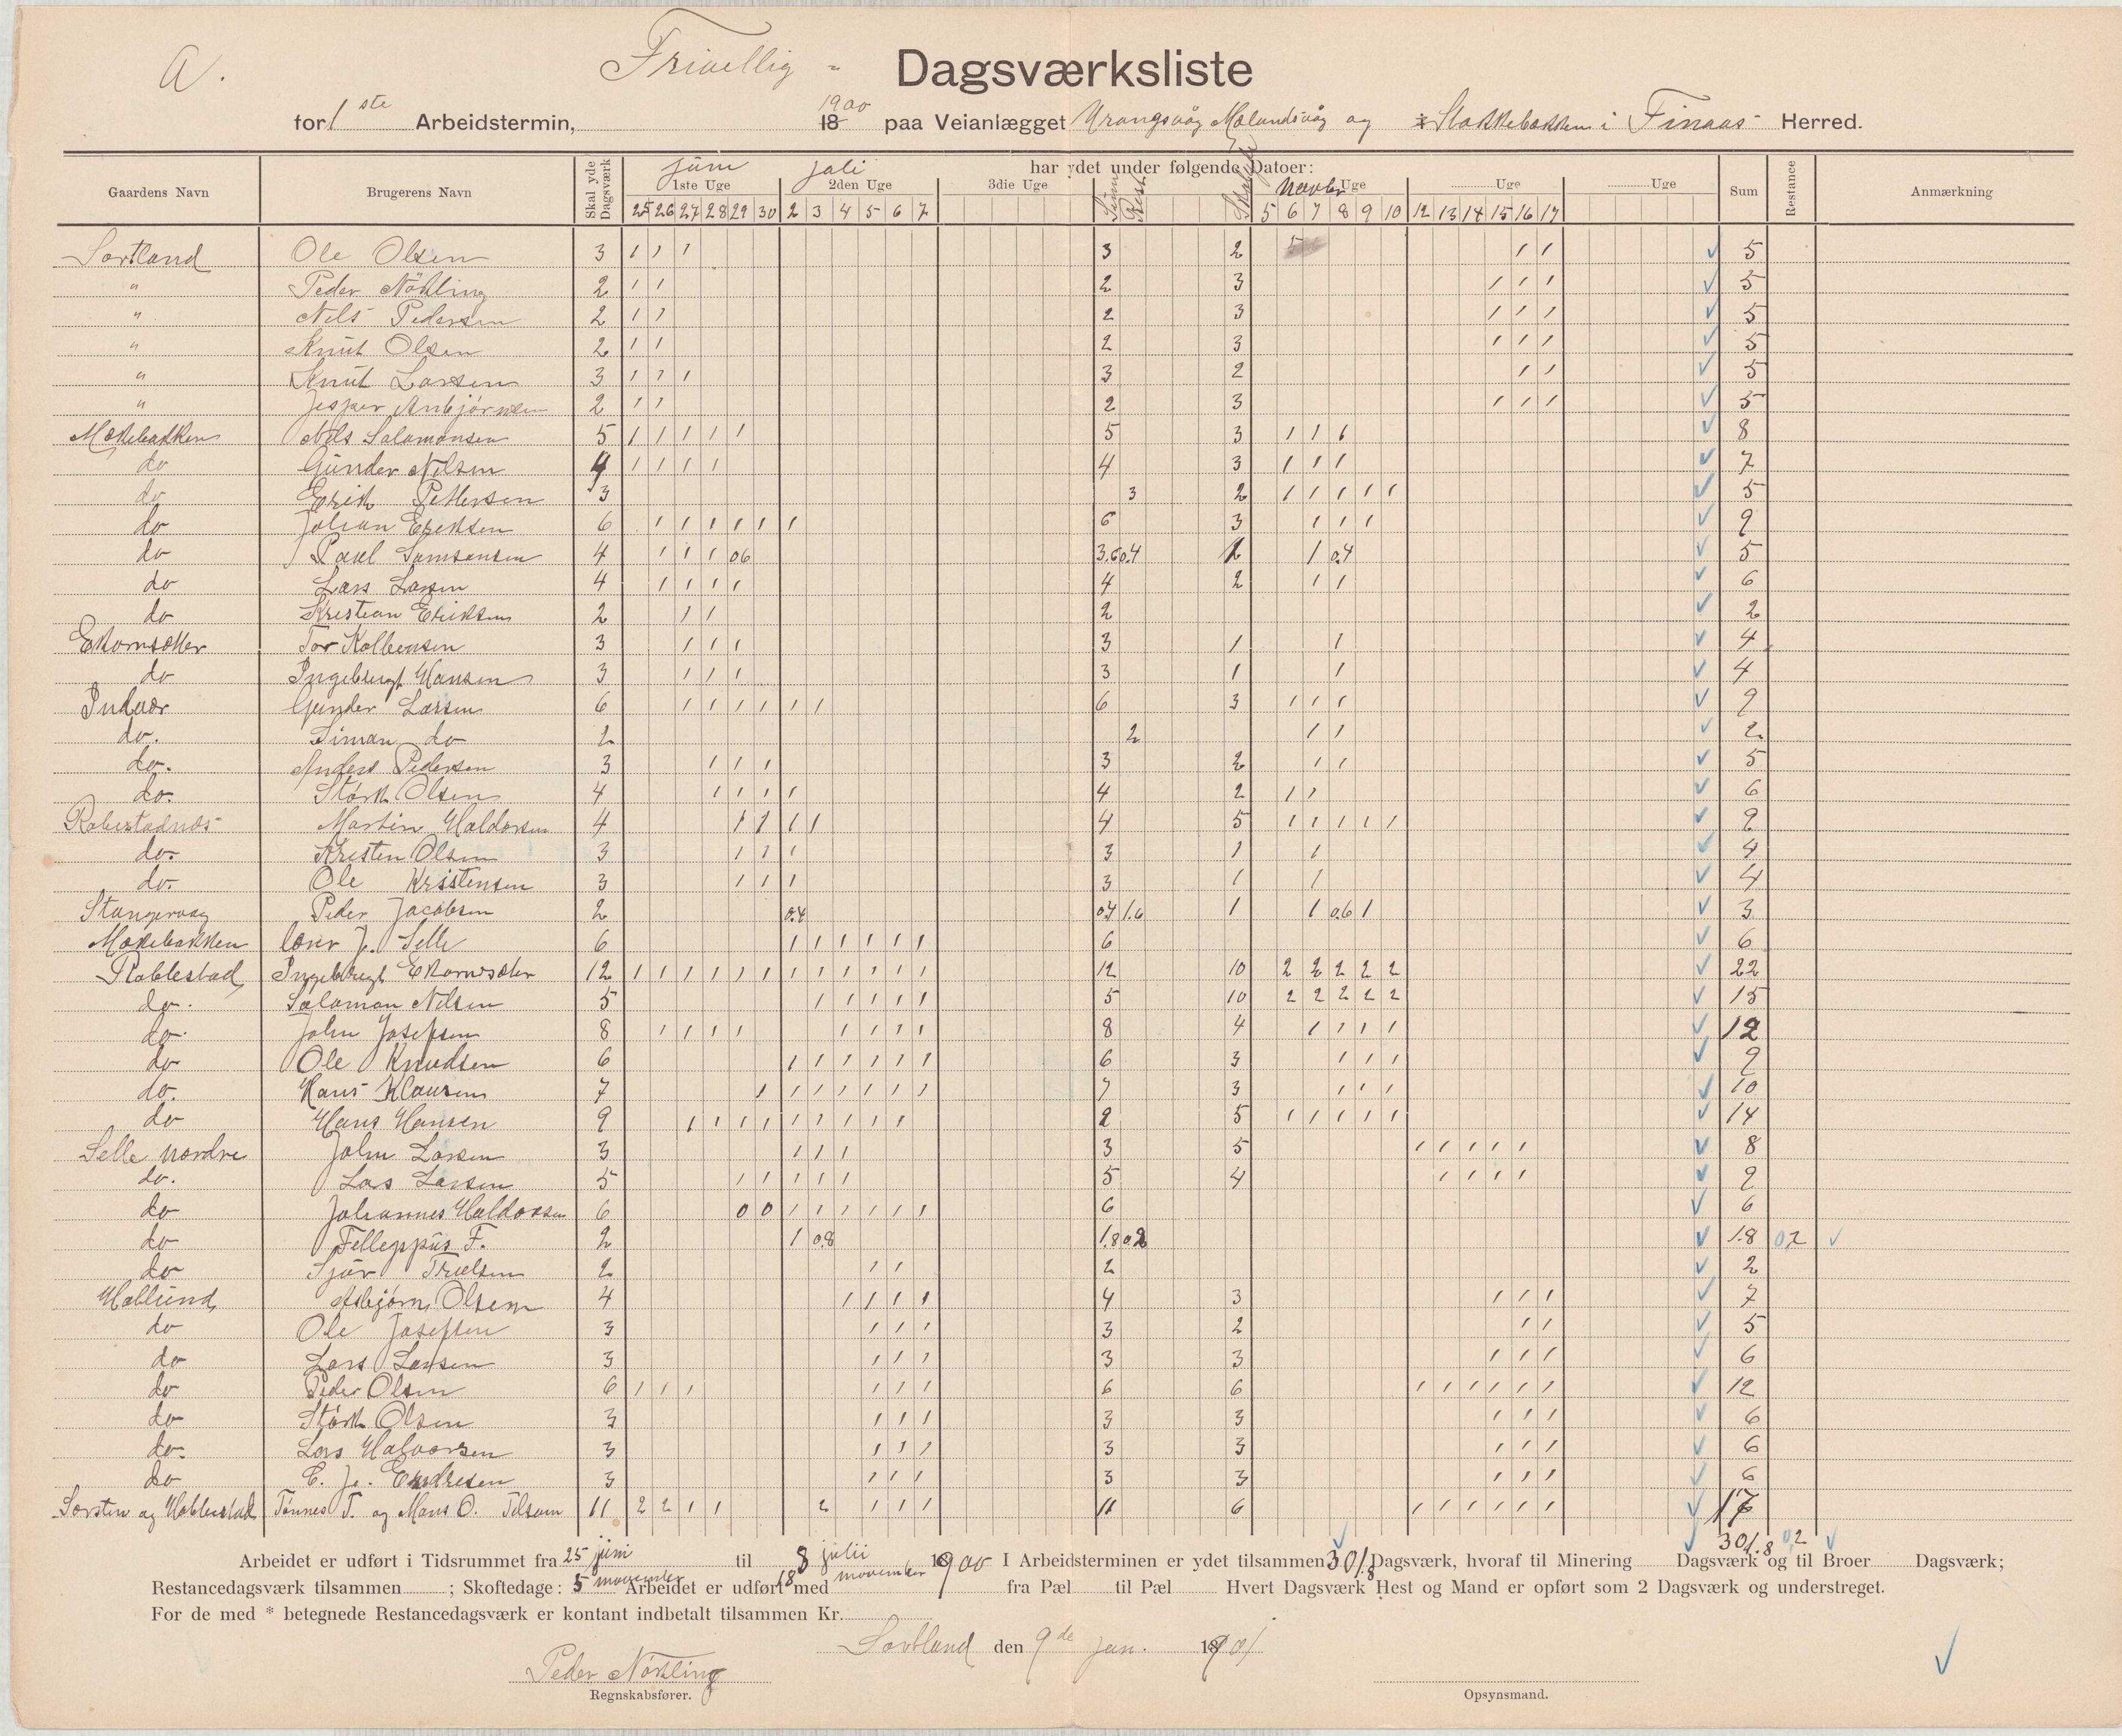 a.
Frivellig - Dagsværksliste
for 1ste Arbeidstermin, 1900 18 paa Veianlægget Urangsvåg Mælandsvåg og Stokkebækken i Finaas Herred.
Gaardens Navn Brugerens Navn Skal yde Dagsværk har ydet under følgende Datoer: Sum Restance Anmærkning
Juni 1ste Uge Juli 2den Uge 3die Uge Sum Rest Novbr Uge Uge Uge
25 26 27 28 29 30 2 3 4 5 6 7 5 6 7 8 9 10 12 13 14 15 16 17
Sortland Ole Olsen 3 1 1 1 3 2 1 1 5
" Peder Nökling 2 1 1 2 3 1 1 1 5
" Nels Pedersen 2 1 1 2 3 1 1 1 5
" Knut Olsen 2 1 1 2 3 1 1 1 5
" Knut Larsen 3 1 1 1 3 2 1 1 5
" Jesper Anbjörnsen 2 1 1 2 3 1 1 1 5
Mækebakken Nils Salamonsen 5 1 1 1 1 1 5 3 1 1 1 8
do Gunder Nilsen 4 1 1 1 1 4 3 1 1 1 7
do Erik Pettersen 3 3 2 1 1 1 1 1 5
do Johan Eriksen 6 1 1 1 1 1 1 6 3 1 1 1 9
do Paul Samsonsen 4 1 1 1 06 3.6 0.4 1 1 0.4 5
do Lars Larsen 4 1 1 1 1 4 2 1 1 6
do Kristian Eriksen 2 1 1 2 2
Ekornsæter Tor Kolbensen 3 1 1 1 3 1 1 4
do Ingebrigt Hansen 3 1 1 1 3 1 1 4
Indvær Gunder Larsen 6 1 1 1 1 1 1 6 3 1 1 1 9
do. Siman do 2 2 1 1 2
do. Anders Pedersen 3 1 1 1 3 2 1 1 5
do. Störk Olsen 4 1 1 1 1 4 2 1 1 6
Robestadnæs Martin Haldorsen 4 1 1 1 1 4 5 1 1 1 1 1 9
do. Kristen Olsen 3 1 1 1 3 1 1 4
do. Ole Kristensen 3 1 1 1 3 1 1 4
Stangervag Peder Jacobsen 2 0.4 0.4 1.6 1 1 0.6 1 3
Mækebakken J. Selle 6 1 1 1 1 1 1 6 6
Roblestad Ingebrigt Ekornsæter 12 1 1 1 1 1 1 1 1 1 1 1 1 12 10 2 2 2 2 2 22
do. Salamon Nilsen 5 1 1 1 1 1 5 10 2 2 2 2 2 15
do. John Josefsen 8 1 1 1 1 1 1 1 1 8 4 1 1 1 1 12
do Ole Knudsen 6 1 1 1 1 1 1 6 3 1 1 1 9
do. Hans Klausen 7 1 1 1 1 1 1 1 7 3 1 1 1 10
do Hans Hansen 9 1 1 1 1 1 1 1 1 1 9 5 1 1 1 1 1 14
Selle nordre John Larsen 3 1 1 1 3 5 1 1 1 1 1 8
do. Lars Larsen 5 1 1 1 1 1 5 4 1 1 1 1 9
do Johannes Haldorsen 6 0 0 1 1 1 1 1 1 6 6
do Felleppus F. 2 1 0.8 1.8 0.2 1.8 0.2
do Sjur Truelsen 2 1 1 2 2
Hallund Asbjörn Olsen 4 1 1 1 1 4 3 1 1 1 7
do Ole Josefsen 3 1 1 1 3 2 1 1 5
do Lars Larsen 3 1 1 1 3 3 1 1 1 6
do Peder Olsen 6 1 1 1 1 1 1 6 6 1 1 1 1 1 1 12
do Störk Olsen 3 1 1 1 3 3 1 1 1 6
do. Lars Halvorsen 3 1 1 1 3 3 1 1 1 6
do C. Je. Endresen 3 1 1 1 3 3 1 1 1 6
Tønnes T. og Mons O. 11 2 2 1 1 2 1 1 1 11 6 1 1 1 1 1 1 17
301.8 0.2
Arbeidet er udført i Tidsrummet fra 25 juni til 8 julii 1900 I Arbeidsterminen er ydet tilsammen 301.8 Dagsværk, hvoraf til Minering Dagsværk og til Broer Dagsværk;
Restancedagsværk tilsammen ; Skoftedage: 5 november Arbeidet er udført med 18 november fra Pæl til Pæl Hvert Dagsværk Hest og Mand er opført som 2 Dagsværk og understreget.
For de med * betegnede Restancedagsværk er kontant indbetalt tilsammen Kr.
Sortland den 9de Jan. 1901
Peder Nökling
Regnskabsfører. Opsynsmand.